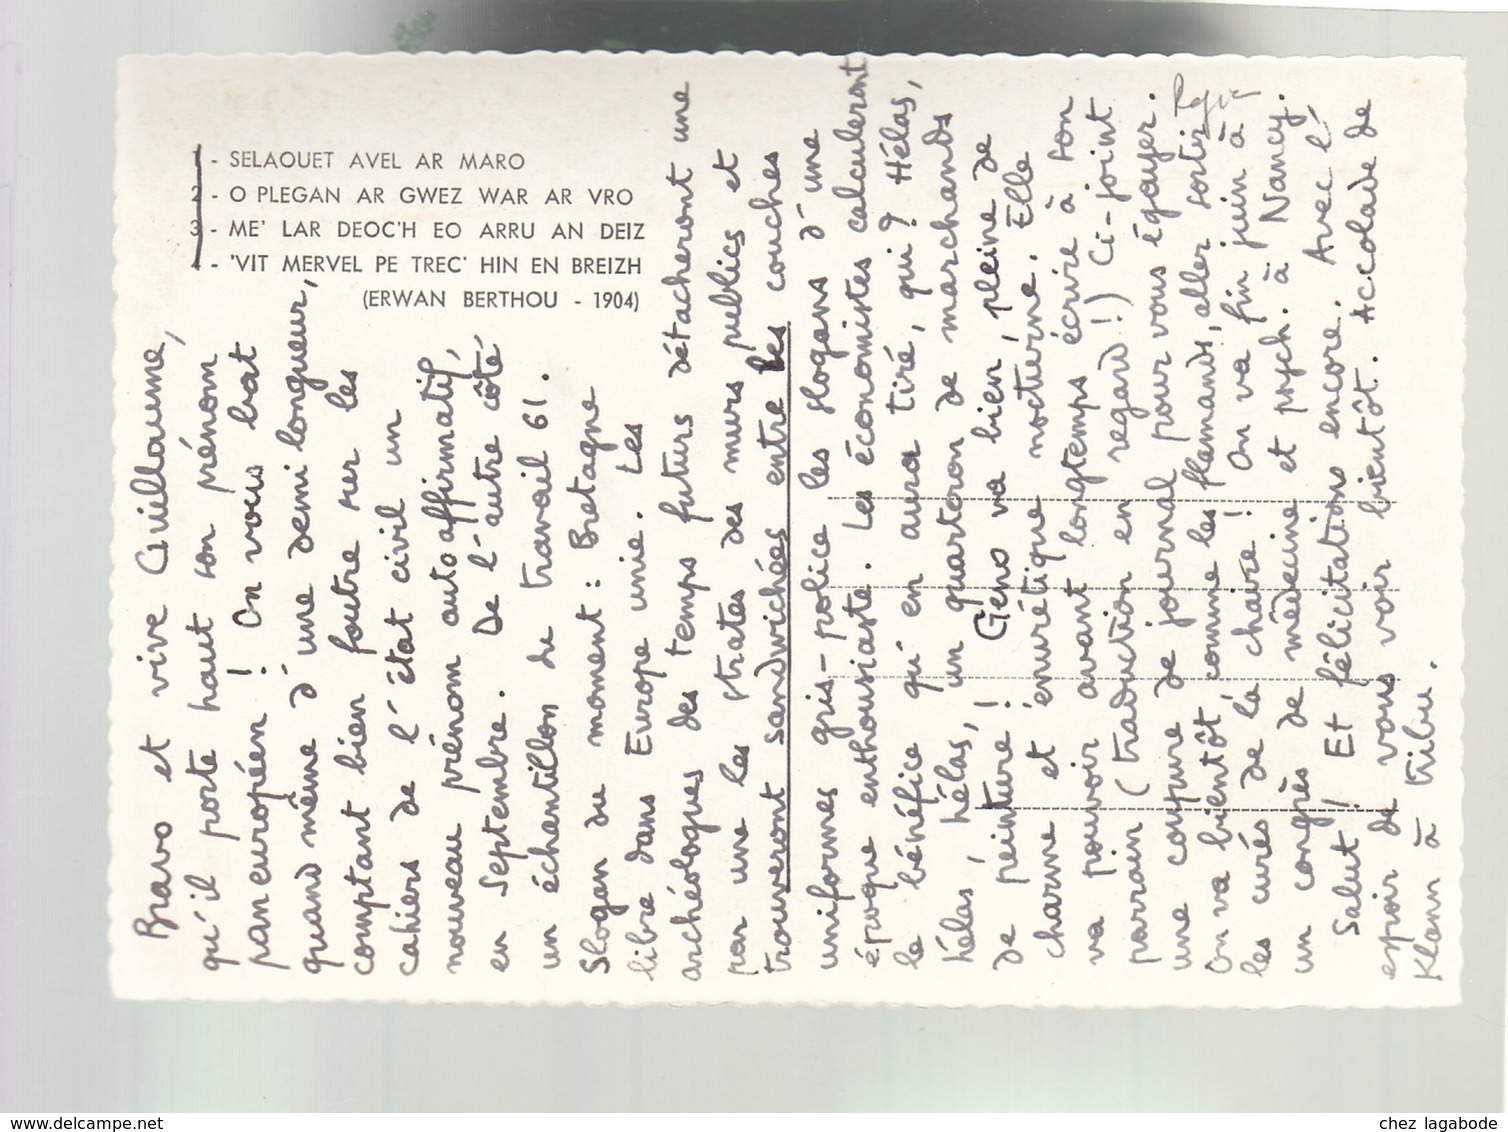 1 - SELAOUET AVEL AR MARO
2 - O PLEGAN AR GWEZ WAR AR VRO
3 - ME' LAR DEOC'H EO ARRU AN DEIZ
4 - 'VIT MERVEL PE TREC' HIN EN BREIZH
(ERWAN BERTHOU - 1904)
Bravo et vive Guillaume,
qu'il porte haut son prénom
paneuropéen ! On vous bat
quand même d'une demi longueur,
comptant bien foutre sur les
cahiers de l'état civil un
nouveau prénom autoaffirmatif,
en Septembre. De l'autre côté
un échantillon du travail 61.
Slogan du moment : Bretagne
libre dans Europe unie. Les
archéologues des temps futurs détacheront une
par une les strates des murs publics et
trouveront sandwichées entre les couches
uniformes gris-police les slogans d'une
époque enthousiaste. Les économistes calculeront
le bénéfice qu'en aura tiré, qui ? Hélas,
hélas, hélas, un quarteron de marchands
de peinture ! Geno va bien, pleine de
charme et énurétique nocturne. Elle
va pouvoir avant longtemps écrire à son
parrain (traduction en regard !) Ci-joint
une coupure de journal pour vous égayer.
On va bientôt comme les flamands, aller sortir
les curés de la chaire ! On va fin juin à
un congrès de médecine et psych. à Nancy.
Salut ! Et félicitations encore. Avec l'
espoir de vous voir bientôt. Accolade de
Klann à tribu.
chez lagabode